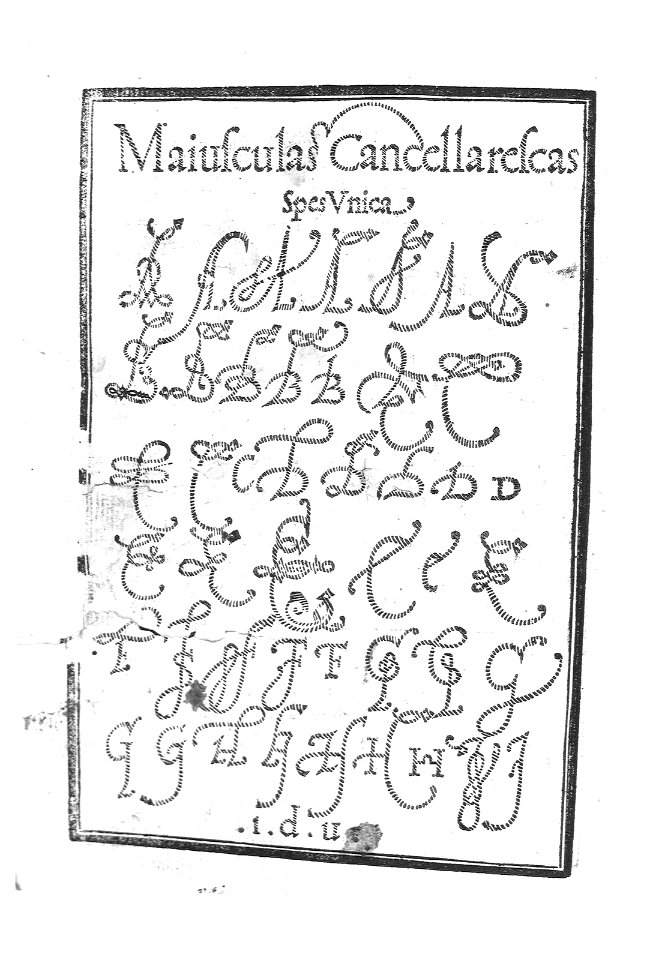 Maiuſculas Cancellareſcas
Spes Vnica
A A A A A A A
B B B B B C C
C C D D D D D
E E E E E E
F F F F F G G G
G G H H H H H I I
.i.d.u